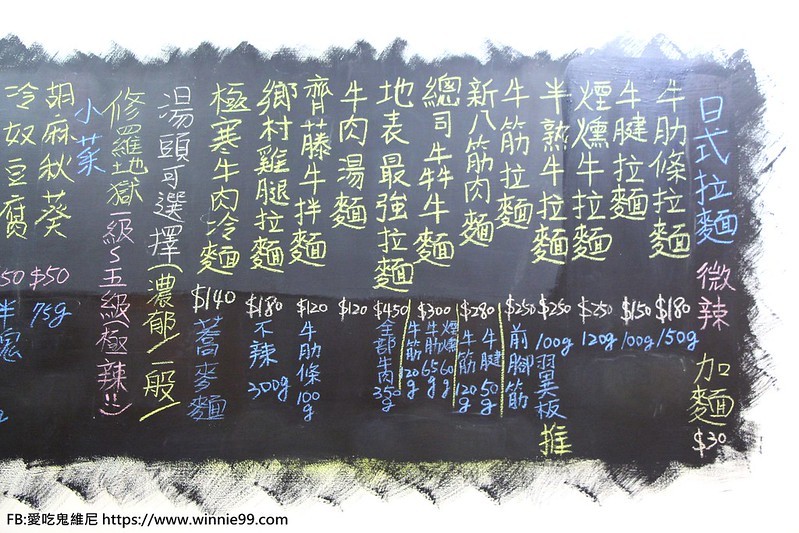 日式拉麵 微辣 加麵 $30
牛肋條拉麵 $180 150g
牛腱拉麵 $150 100g
煙燻牛拉麵 $250 120g
半熟牛拉麵 $250 100g 翼板 推
牛筋拉麵 $250 前腳筋
新八筋肉麵 $280 牛腱50g 牛筋120g
總司牛牪牛麵 $300 煙燻60g 牛肋65g 牛筋120g
地表最強拉麵 $450 全部牛肉350g
牛肉湯麵 $120
齊藤牛拌麵 $120 牛肋條100g
鄉村雞腿拉麵 $180 不辣 300g
極寒牛肉冷麵 $140 蕎麥麵
湯頭可選擇(濃郁/一般/
修羅地獄一級~五級(極辣
小菜
胡麻秋葵 $50 75g
冷奴豆腐 50 半
FB:愛吃鬼維尼 https://www.winnie99.com